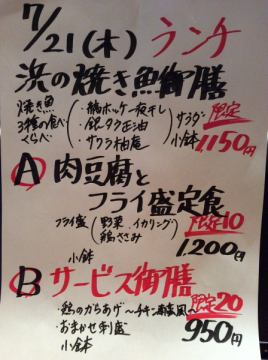 7/21(木) ランチ
浜の焼き魚御膳
焼き魚 3種の食べくらべ
・縞ホッケ一夜干し
・銀タラ正油
・サワラ柚庵
サラダ 小鉢
限定
1,150円
A 肉豆腐と
フライ盛定食
フライ盛(野菜、イカリング 鶏ささみ)
小鉢
限定10
1,200円
B サービス御膳
・鶏のからあげ 〜チキン南蛮風〜
・おまかせ刺盛
小鉢
限定20
950円